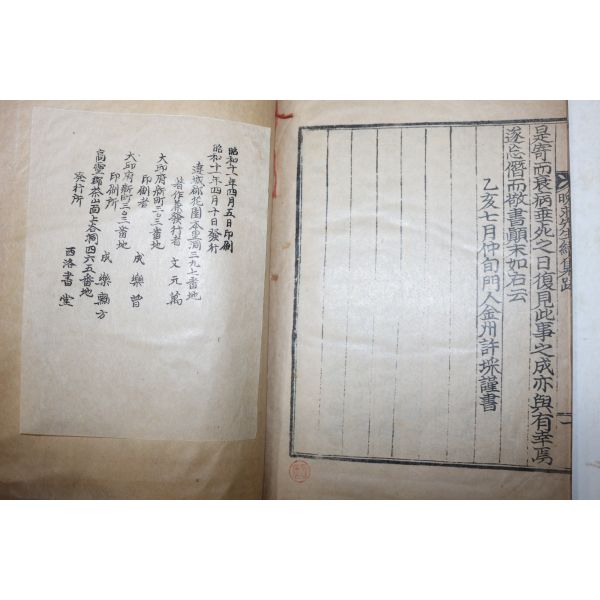 是寄而衰病垂死之日復見此事之成亦與有幸焉
遂忘僭而敬書顚末如右云
乙亥七月仲旬門人金州許埰謹書
昭和十一年四月五日印刷
昭和十一年四月十日發行
達城郡花園本里洞三九七番地
著作兼發行者 文元萬
大邱府新町二〇三番地
印刷者 成樂曾
大邱府新町二〇三番地
印刷所 成樂勳方
高靈郡茶山面上谷洞四六五番地
發行所 西洛書堂